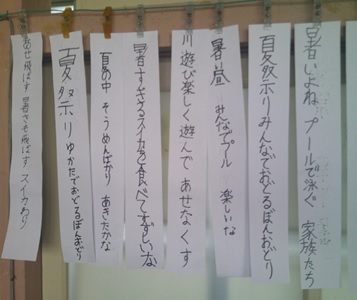 暑いよね プールで泳ぐ 家族たち
夏祭りみんなでおどるぼんおどり
暑い昼 みんなでプール 楽しいな
川遊び楽しく遊んであせなくす
暑すぎるスイカを食べてすずしいな
夏の中 そうめんばかり あきたかな
夏祭り ゆかたでおどるぼんおどり
あせ飛ばす 暑さも飛ばす スイカわり